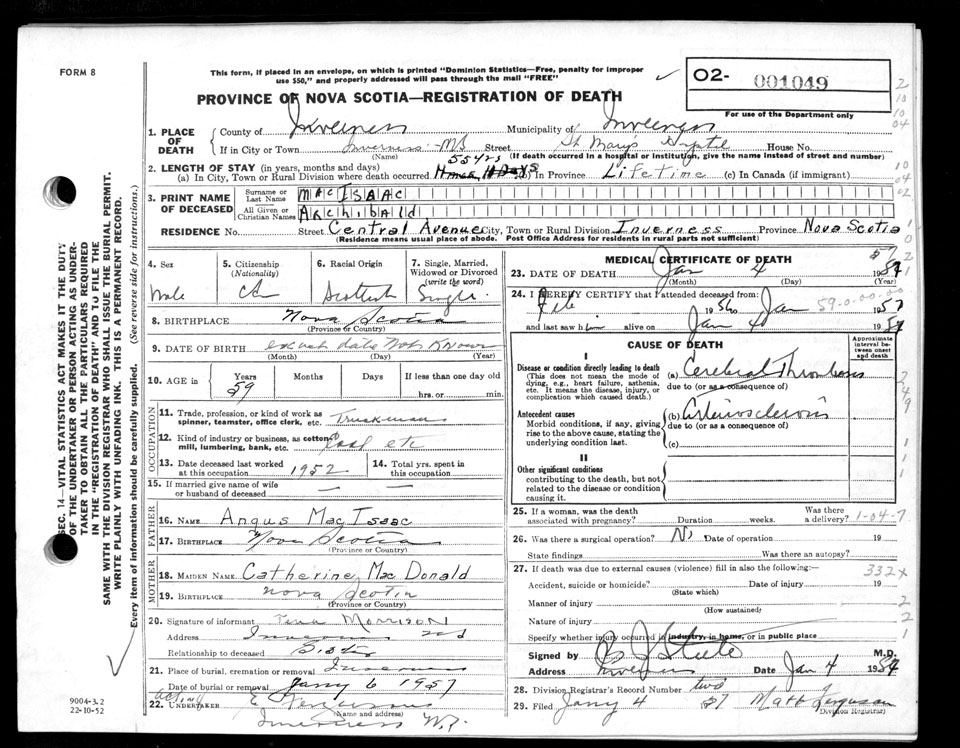 FORM 8
This form, if placed in an envelope, on which is printed "Dominion Statistics—Free, penalty for improper
use $50," and properly addressed will pass through the mail "FREE"
O2- 001049
For use of the Department only
PROVINCE OF NOVA SCOTIA—REGISTRATION OF DEATH
1. PLACE OF DEATH
County of Inverness Municipality of Inverness
If in City or Town Inverness NS Street St Mary's Hospital House No.
(Name) (If death occurred in a hospital or institution, give the name instead of street and number)
2. LENGTH OF STAY (in years, months and days) 55 yrs
(a) In City, Town or Rural Division where death occurred (b) in Province Lifetime (c) In Canada (if immigrant)
3. PRINT NAME OF DECEASED
Surname or Last Name MacIsaac
All Given or Christian Names Archibald
RESIDENCE No. Street Central Avenue City, Town or Rural Division Inverness Province Nova Scotia
(Residence means usual place of abode. Post Office Address for residents in rural parts not sufficient)
4. Sex Male
5. Citizenship (Nationality)
6. Racial Origin Scottish
7. Single, Married, Widowed or Divorced (write the word) Single
8. BIRTHPLACE Nova Scotia
(Province or Country)
9. DATE OF BIRTH exact date Not Known
(Month) (Day) (Year)
10. AGE in Years 59 Months Days If less than one day old
hrs. or min.
OCCUPATION
11. Trade, profession, or kind of work as spinner, teamster, office clerk, etc. Truckman
12. Kind of industry or business, as cotton mill, lumbering, bank, etc. coal etc
13. Date deceased last worked at this occupation 1952
14. Total yrs. spent in this occupation
15. If married give name of wife or husband of deceased — —
FATHER
16. NAME Angus MacIsaac
17. BIRTHPLACE Nova Scotia
(Province or Country)
MOTHER
18. MAIDEN NAME Catherine MacDonald
19. BIRTHPLACE Nova Scotia
(Province or Country)
20. Signature of informant Tena Morrison
Address Inverness NS
Relationship to deceased Sister
21. Place of burial, cremation or removal Inverness
Date of burial or removal Janry 6 1957
22. UNDERTAKER
(Name and address)
Inverness N.S.
MEDICAL CERTIFICATE OF DEATH
23. DATE OF DEATH Jan 4 1957
(Month) (Day)
24. I HEREBY CERTIFY that I attended deceased from:
Feb 1956 to Jan 1957
59-0-00-00
and last saw him alive on Jan 4 1957
CAUSE OF DEATH
Approximate interval between onset and death
I
Disease or condition directly leading to death
(This does not mean the mode of dying, e.g., heart failure, asthenia, etc. It means the disease, injury, or complication which caused death.)
(a) Cerebral Thrombosis
due to (or as a consequence of)
Antecedent causes
Morbid conditions, if any, giving rise to the above cause, stating the underlying condition last.
(b) Arteriosclerosis
due to (or as a consequence of)
(c)
II
Other significant conditions
contributing to the death, but not related to the disease or condition causing it.
25. If a woman, was the death associated with pregnancy? Duration weeks. Was there a delivery? 1-04-7
26. Was there a surgical operation? No Date of operation 19
State findings Was there an autopsy?
27. If death was due to external causes (violence) fill in also the following: 332x
Accident, suicide or homicide? Date of injury 19
(State which)
Manner of injury
(How sustained)
Nature of injury
Specify whether injury occurred in industry, in home, or in public place
Signed by M.D.
Address Inverness Date Jan 4 1957
28. Division Registrar's Record Number two
29. Filed Janry 4 57 Matt Ferguson
Division Registrar
SEC. 14—VITAL STATISTICS ACT MAKES IT THE DUTY
OF THE UNDERTAKER OR PERSON ACTING AS UNDER-
TAKER TO OBTAIN ALL THE PARTICULARS REQUIRED
IN THE "REGISTRATION OF DEATH" AND TO FILE THE
SAME WITH THE DIVISION REGISTRAR WHO SHALL ISSUE THE BURIAL PERMIT.
WRITE PLAINLY WITH UNFADING INK. THIS IS A PERMANENT RECORD.
Every item of information should be carefully supplied. (See reverse side for instructions.)
9004-3.2
22-10-52